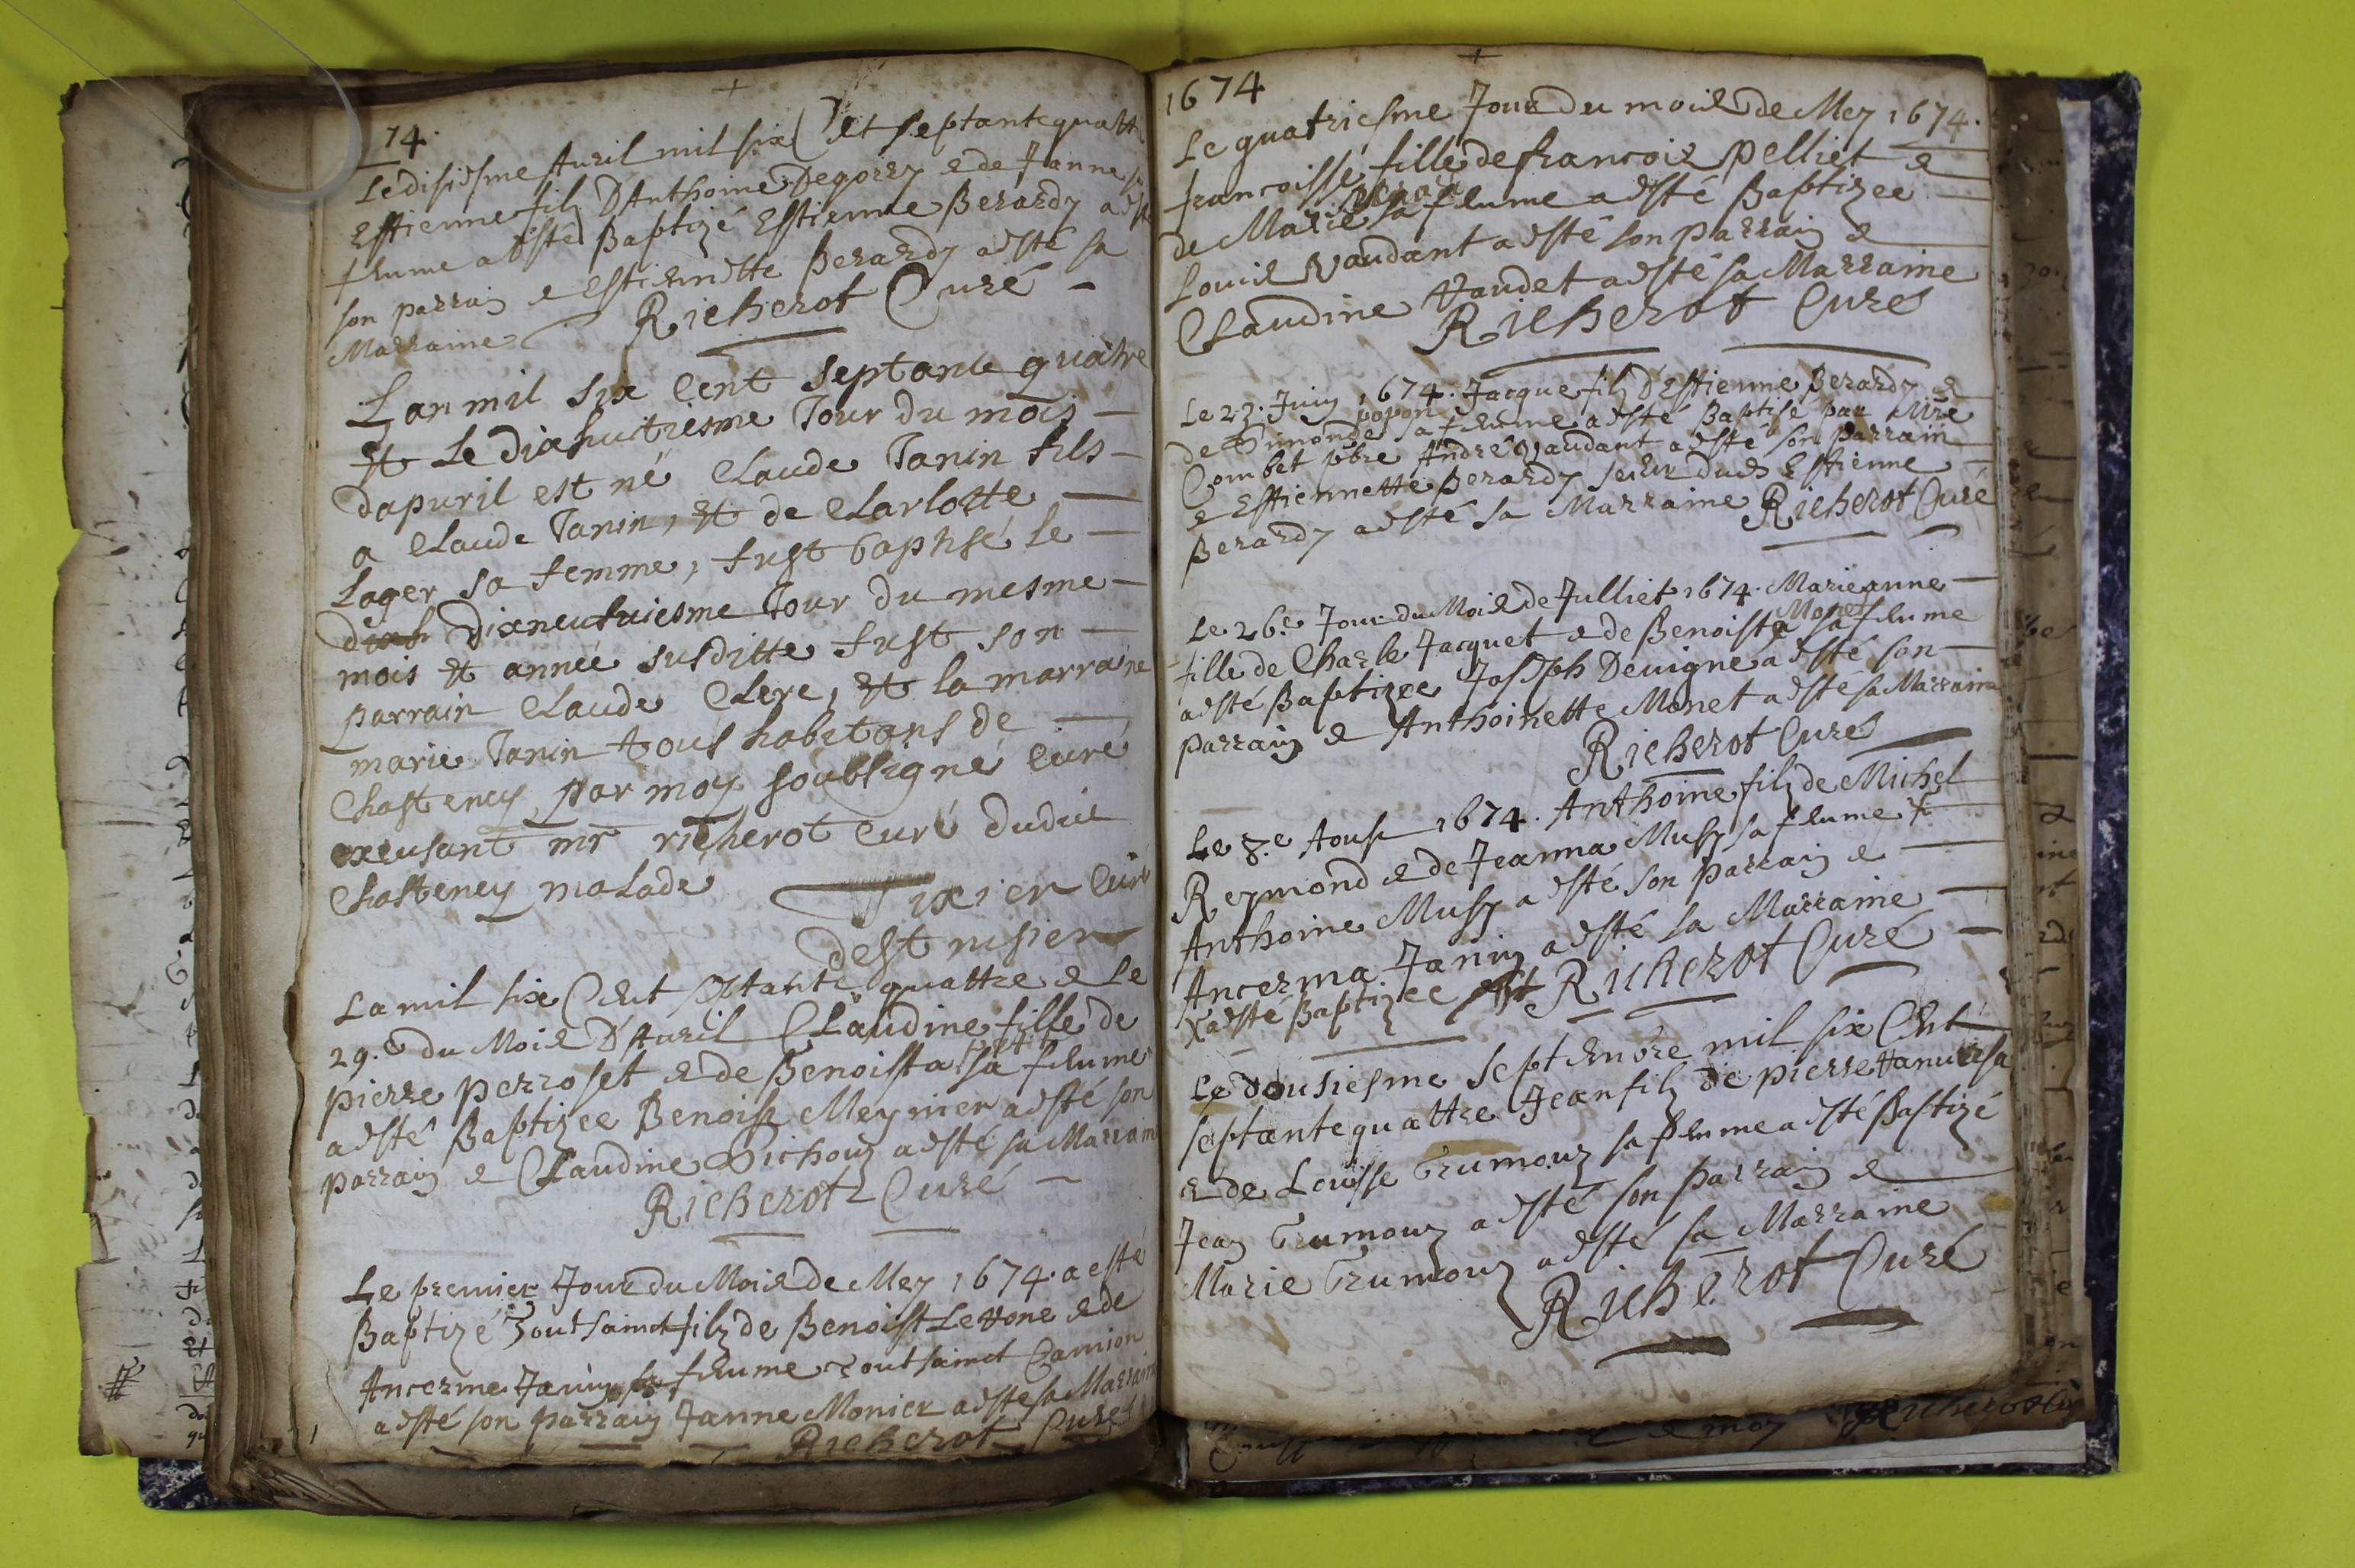 74.
Le disiesme Auril mil six Cet septante quattre
Estienne filz D'Anthoine Degorzy & de Jeanne sa
feume a esté Baptizé Estienne Berardy a esté
son parrain & Estiennette Berardy a esté sa
Marraine Richerot Curé
Lan mil six Cent septante quatre
et Le dixhuictiesme Jour du mois
dapuril est né Claude Janin fils
a Claude Janin, et de Clarlotte
Lager sa femme, fust baptisé le
dixneufuiesme Jour du mesme
mois et année susditte fust son
parrain Claude Clere, et la marraine
marie Janin tous habitans de
Chasteney par moy soubsigné Curé
excusant mr richerot Curé dudict
Chasteney malade Tixier Curé
La mil six Cent septante quattre & Le
29.e du Mois D'Auril Claudine fille de
pierre perroset & de Benoista sa feume
a esté Baptizee Benoist Meynier a esté son
parrain & Claudine Pichouz a esté sa Marraine
Richerot Curé
Le premier Jour du Mois de Mey 1674. a esté
Baptizé Toutsainct filz de Benoist Levone & de
Ancerme Janin sa feume Toutsainct Camion
a esté son parrain Janne Monier a esté sa Marraine
Richerot Curé
1674
Le quatriesme Jour du mois de Mey 1674.
francoisse fille de francois pelliet &
de Marie sa feume a esté Baptizee
Louis Vaudant a esté son parrain &
Claudine Vaudet a esté sa Marraine
Richerot Curé
Le 22. Juin 1674. Jacque filz D'Estienne Berardy &
popon
de Simonde sa feume a esté Baptisé par Mire
Combet pbre André Vaudant a esté son parrain
& Estiennette Berardy seur dud Estienne
Berardy a esté sa Marraine Richerot Curé
Le 26.e Jour du Mois de Julliet 1674. Marieanne
Monet
fille de Charle Jacquet & de Benoista sa feume
a esté Baptizee Joseph Deuigne a esté son
parrain & Anthoinette Monet a esté sa Marraine
Richerot Curé
Le 8.e Aoust 1674. Anthoine filz de Michel
Reymond & de Jeanna Musy sa feume X
Anthoine Musy a esté son parrain &
Ancerma Janin a esté sa Marraine
X a esté Baptizee Richerot Curé
Le dousiesme septenbre mil six Cent
septante quattre Jean filz de pierre
& de Louisse Trumouz sa feume a esté Baptizé
Jean Trumouz a esté son parrain &
Marie Trumouz a esté sa Marraine
Richerot Curé